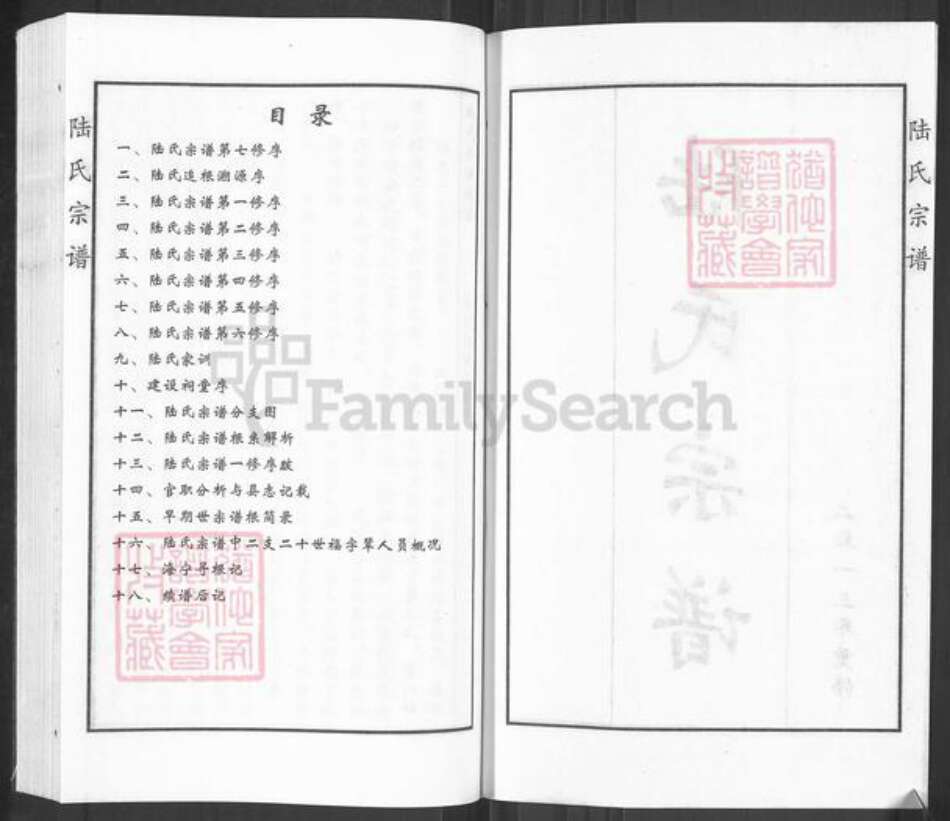 陆氏宗谱
目录
一、陆氏宗谱第七修序
二、陆氏追根溯源序
三、陆氏宗谱第一修序
四、陆氏宗谱第二修序
五、陆氏宗谱第三修序
六、陆氏宗谱第四修序
七、陆氏宗谱第五修序
八、陆氏宗谱第六修序
九、陆氏家训
十、建设祠堂序
十一、陆氏宗谱分支图
十二、陆氏宗谱根系解析
十三、陆氏宗谱一修序跋
十四、官职分析与县志记载
十五、早期世宗谱根简录
十六、陆氏宗谱中二支二十世福字辈人员概况
十七、海宁寻根记
十八、续谱后记
FamilySearch
陆氏宗谱
譜學會
收藏